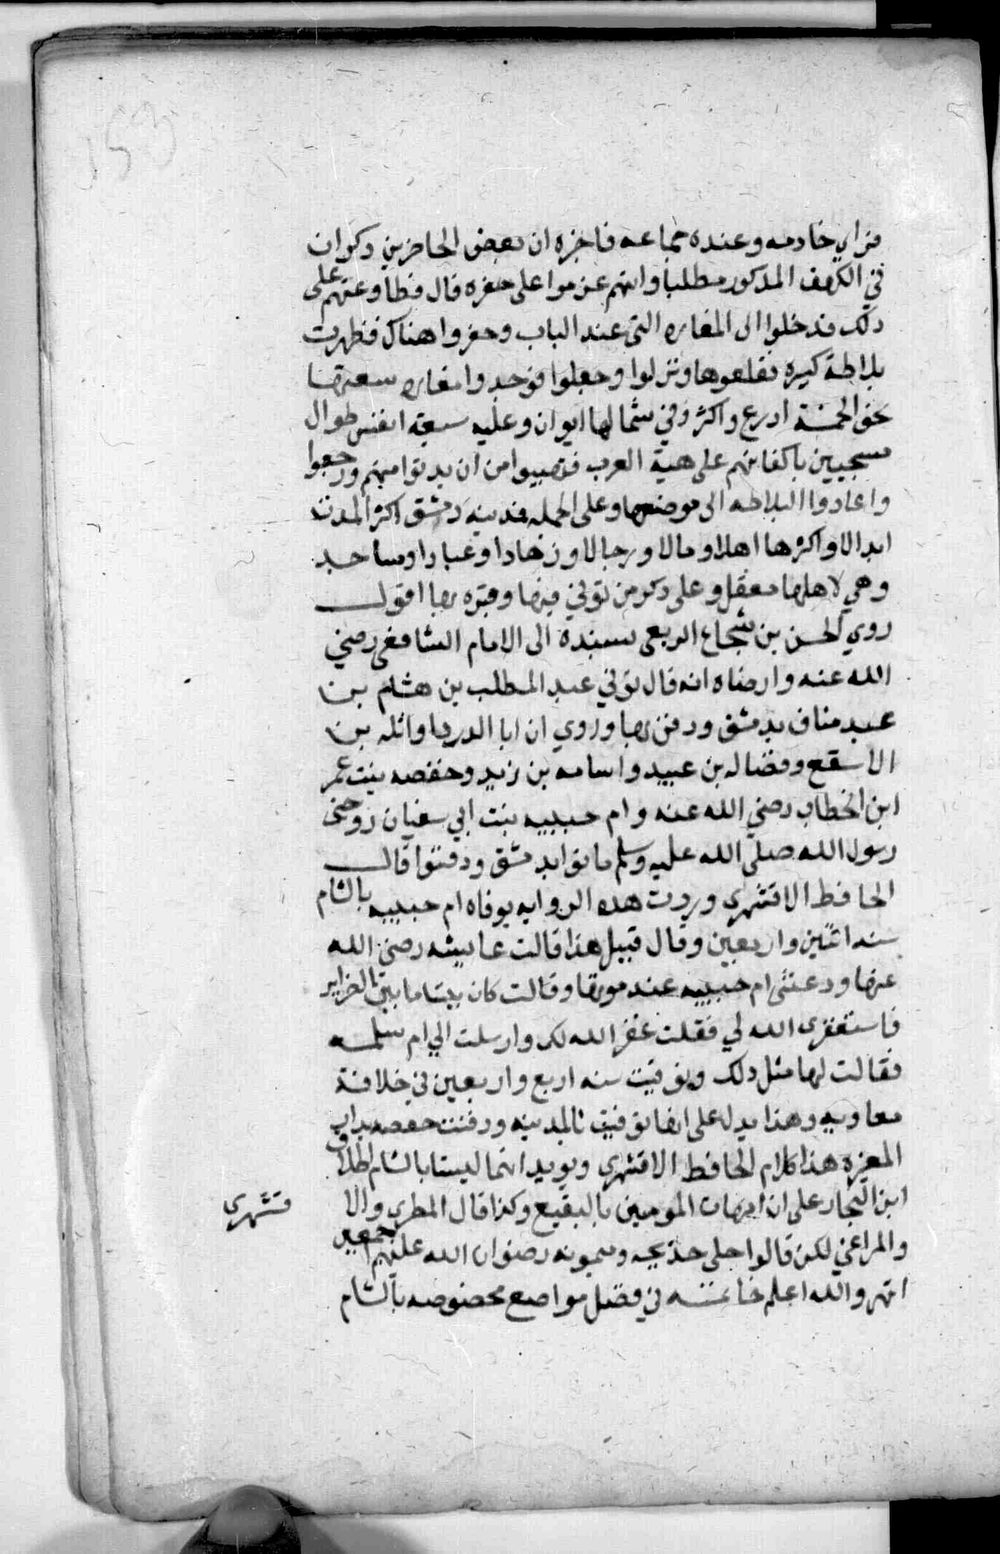 فراي خادمه وعنده جماعه فاخبره ان بعض الحاضرين ذكروا ان
في الكهف المذكور مطلبا وانهم عزموا على حفره قال فطاوعتهم على
ذلك فدخلوا الى المغاره التي عند الباب وحفروا هناك فظهرت
بلاطة كبيره فقلعوها ونزلوا وجعلوا فوجدوا مغاره سعتها
نحو الخمسة ادرع واكثر وفي شمالها ايوان وعليه سبعة انفس طوال
مسجيين باكفانهم على هية العرب فتهيبوا من ان يدنوا منهم ورجعوا
واعادوا البلاطه الى موضعها وعلى الجمله فمدينه دمشق اكثر المدن
ابدالا واكثرها اهلا ومالا ورجالا وزهادا وعبادا ومساجد
وهي لاهلها معقل وعلى ذكر من توفي فيها وقبره بها اقول
روي الحسن بن شجاع الربعي بسنده الى الامام الشافعي رضي
الله عنه وارضاه انه قال توفي عبد المطلب بن هشام بن
عبد مناف بدمشق ودفن بها وروي ان ابا الدردا واثله بن
الاسقع وفضاله بن عبيد واسامه بن زيد وحفصه بنت عمر
ابن الخطاب رضي الله عنه وام حبيبه بنت ابي سفيان زوجتى
رسول الله صلى الله عليه وسلم ماتوا بدمشق ودفنوا قال
الحافظ الاقشهري وردت هذه الروايه بوفاه ام حبيبه بالشام
سنه اثنين واربعين وقال قبيل هذا قالت عايشه رضى الله
عنها ودعتنى ام حبيبه عند موتها وقالت كان بيننا ما بين الضراير
فاستغفرى الله لي فقلت غفر الله لك وارسلت الي ام سلمه
فقالت لها مثل ذلك وتوفيت سنه اربع واربعين في خلافة
معاويه وهذا يدله على انها توفيت بالمدينه ودفنت حفصه بباب
المعزه هذا كلام الحافظ الاقشهري ويويد انهما ليستا بالشام اطلاق
ابن النجار على ان امهات المومنين بالبقيع وكذا قال المطري والا
قشهري
والمراغي لكن قالوا خلى خديجه وميمونه رضوان الله عليهم اجمعين
انتهى والله اعلم خاتمه في فضل مواضع مخصوصه بالشام